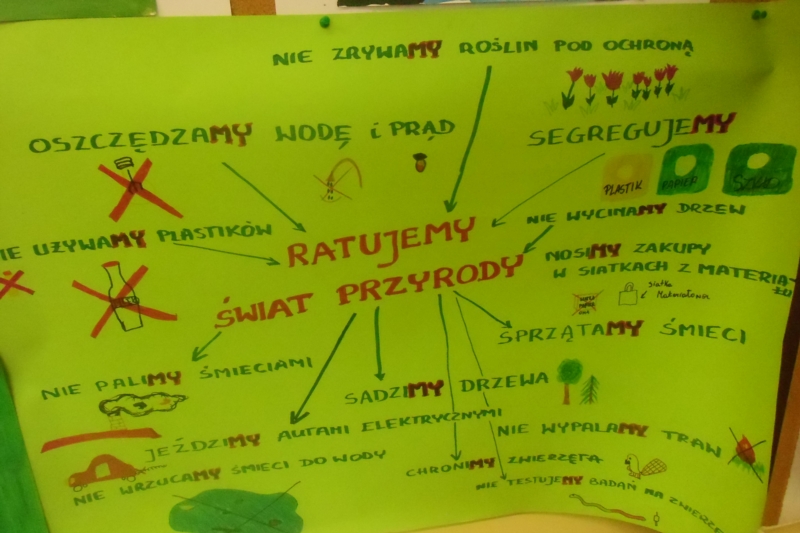 NIE ZRYWAMY ROŚLIN POD OCHRONĄ
OSZCZĘDZAMY WODĘ i PRĄD
SEGREGUJEMY
PLASTIK PAPIER SZKŁO
NIE WYCINAMY DRZEW
IE UŻYWAMY PLASTIKÓW
RATUJEMY
ŚWIAT PRZYRODY
NOSIMY ZAKUPY
W SIATKACH Z MATERIA-
ŁU
siatka
Materiałowa
SPRZĄTAMY ŚMIECI
NIE PALIMY ŚMIECIAMI
SADZIMY DRZEWA
JEŹDZIMY AUTAMI ELEKTRYCZNYMI
NIE WYPALAMY TRAW
NIE WRZUCAMY ŚMIECI DO WODY
CHRONIMY ZWIERZĘTA
NIE TESTUJEMY BADAŃ NA ZWIERZĘ